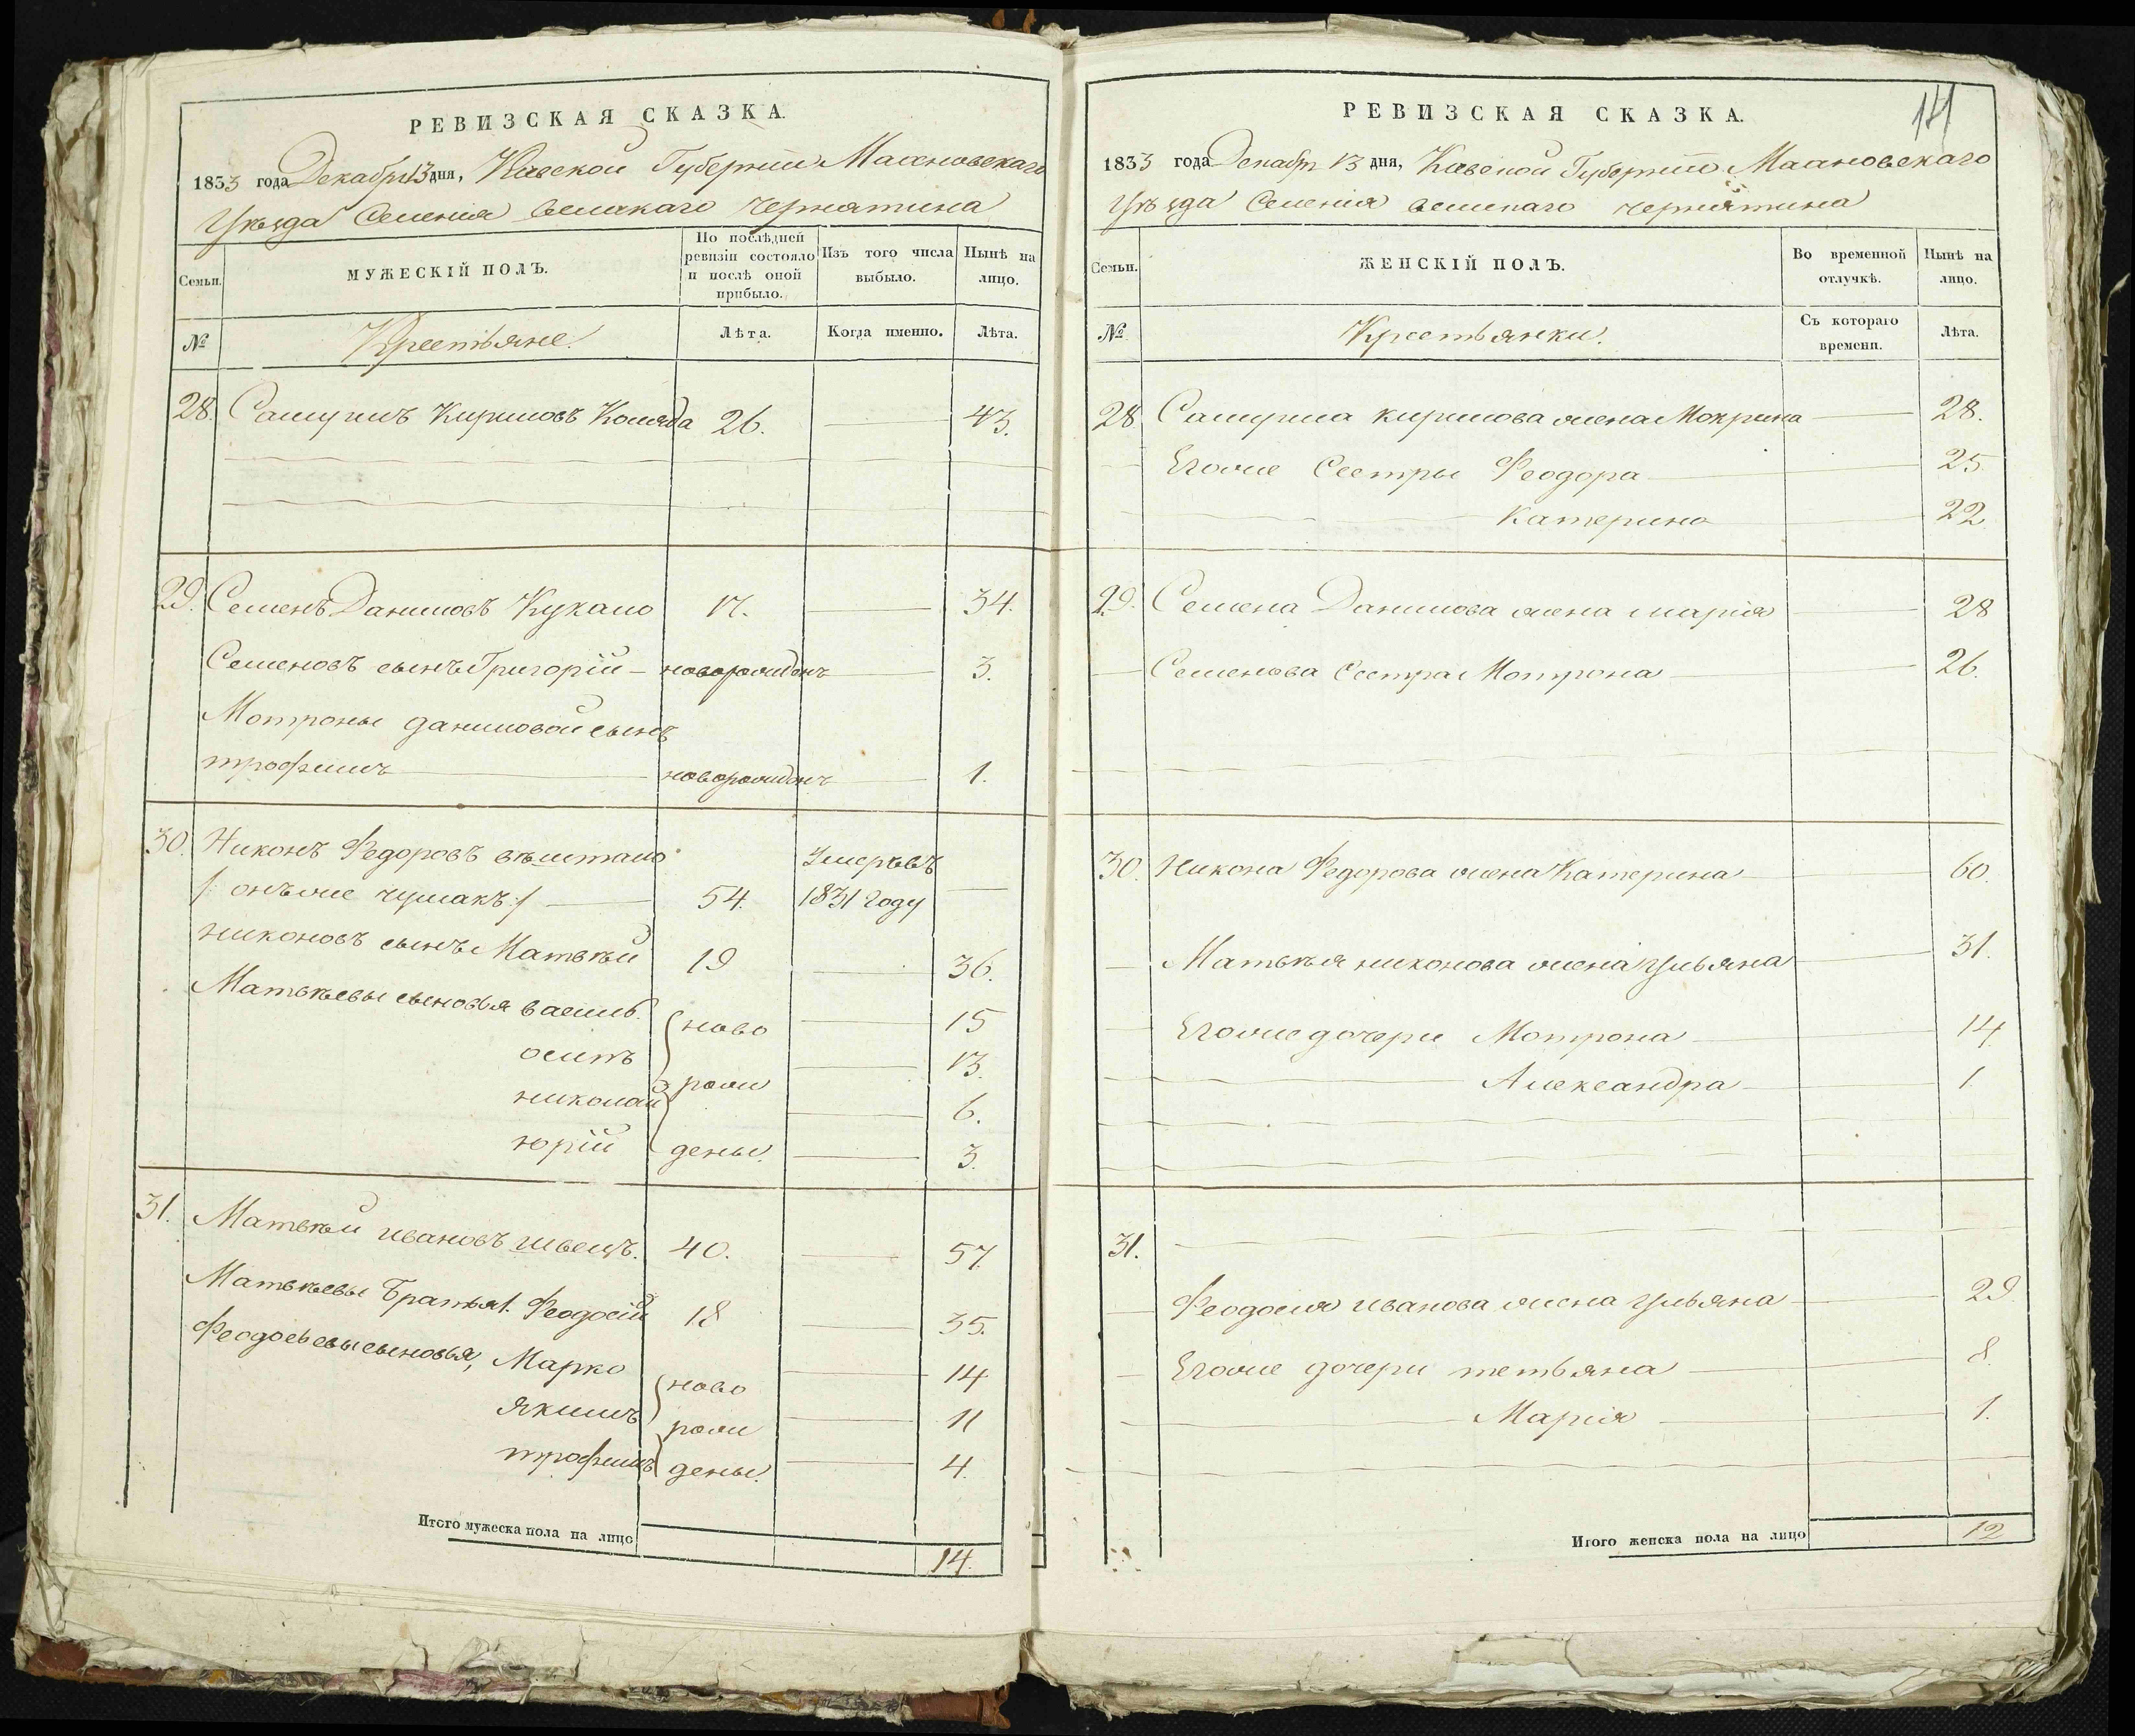 РЕВИЗСКАЯ СКАЗКА.
1833 года Декабря 13 дня, Киевской Губернии Махновскаго
Уѣзда Селенія Великаго Чернятина
Семьи.
МУЖЕСКІЙ ПОЛЪ.
По послѣдней ревизіи состояло и послѣ оной прибыло.
Изъ того числа выбыло.
Нынѣ на лицо.
№
Крестьяне.
Лѣта.
Когда именно.
Лѣта.
28. Самуилъ Кириловъ Коляда 26. 43.
29. Семенъ Даниловъ Кукало 17. 34.
Семеновъ сынъ Григорій новорожденъ 3.
Мотроны даниловой сынъ
трофимъ новорожденъ 1.
30. Никонъ Федоровъ Умерьвъ
/: онъ же чумакъ :/ 54. 1831 году
никоновъ сынъ Матвѣй 19 36.
Матвѣевы сыновья василь ново 15
осипъ 13.
николай рож 6.
юрій дены. 3.
31. Матвѣй ивановъ швецъ. 40. 57.
Матвѣевы Братья 1. Феодосій 18 35.
Феодосьевы сыновья, Марко ново 14
якимъ рож 11
трофимъ дены. 4.
Итого мужеска пола на лицо 14.
14
РЕВИЗСКАЯ СКАЗКА.
1833 года Декабря 13 дня, Киевской Губернии Махновскаго
Уѣзда Селенія великаго чернятина
Семьи.
ЖЕНСКІЙ ПОЛЪ.
Во временной отлучкѣ.
Нынѣ на лицо.
№
Крестьянки.
Съ котораго времени.
Лѣта.
28 Самуила кирилова жена Мокрина 28.
Егоже Сестры Феодора 25
Катерина 22.
29. Семена Данилова жена марія 28
Семенова Сестра Мотрона 26.
30. Никона Федорова жена Катерина 60.
Матвѣя никонова жена Ульяна 31.
Егоже дочери Мотрона 14
Александра 1
31.
Феодосия иванова жена Ульяна 29
Егоже дочери тетьяна 8.
Марія 1.
Итого женска пола на лицо 12